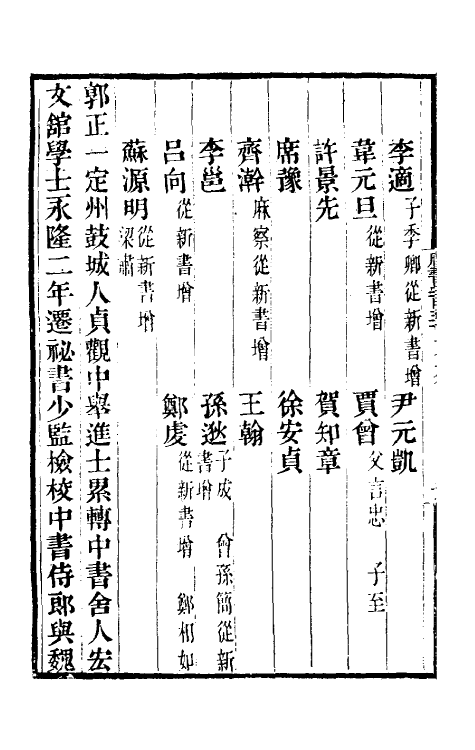 李適 子季卿從新書增 尹元凱
韋元旦 從新書增 賈曾 父言忠 子至
許景先 賀知章
席豫 徐安貞
齊澣 麻察從新書增 王翰
李邕 孫逖 子成 曾孫簡從新書增
呂向 從新書增 鄭虔 從新書增 鄭相如
蘇源明 從新書增 梁肅
郭正一定州鼓城人貞觀中舉進士累轉中書舍人宏
文館學士永隆二年遷祕書少監檢校中書侍郎與魏